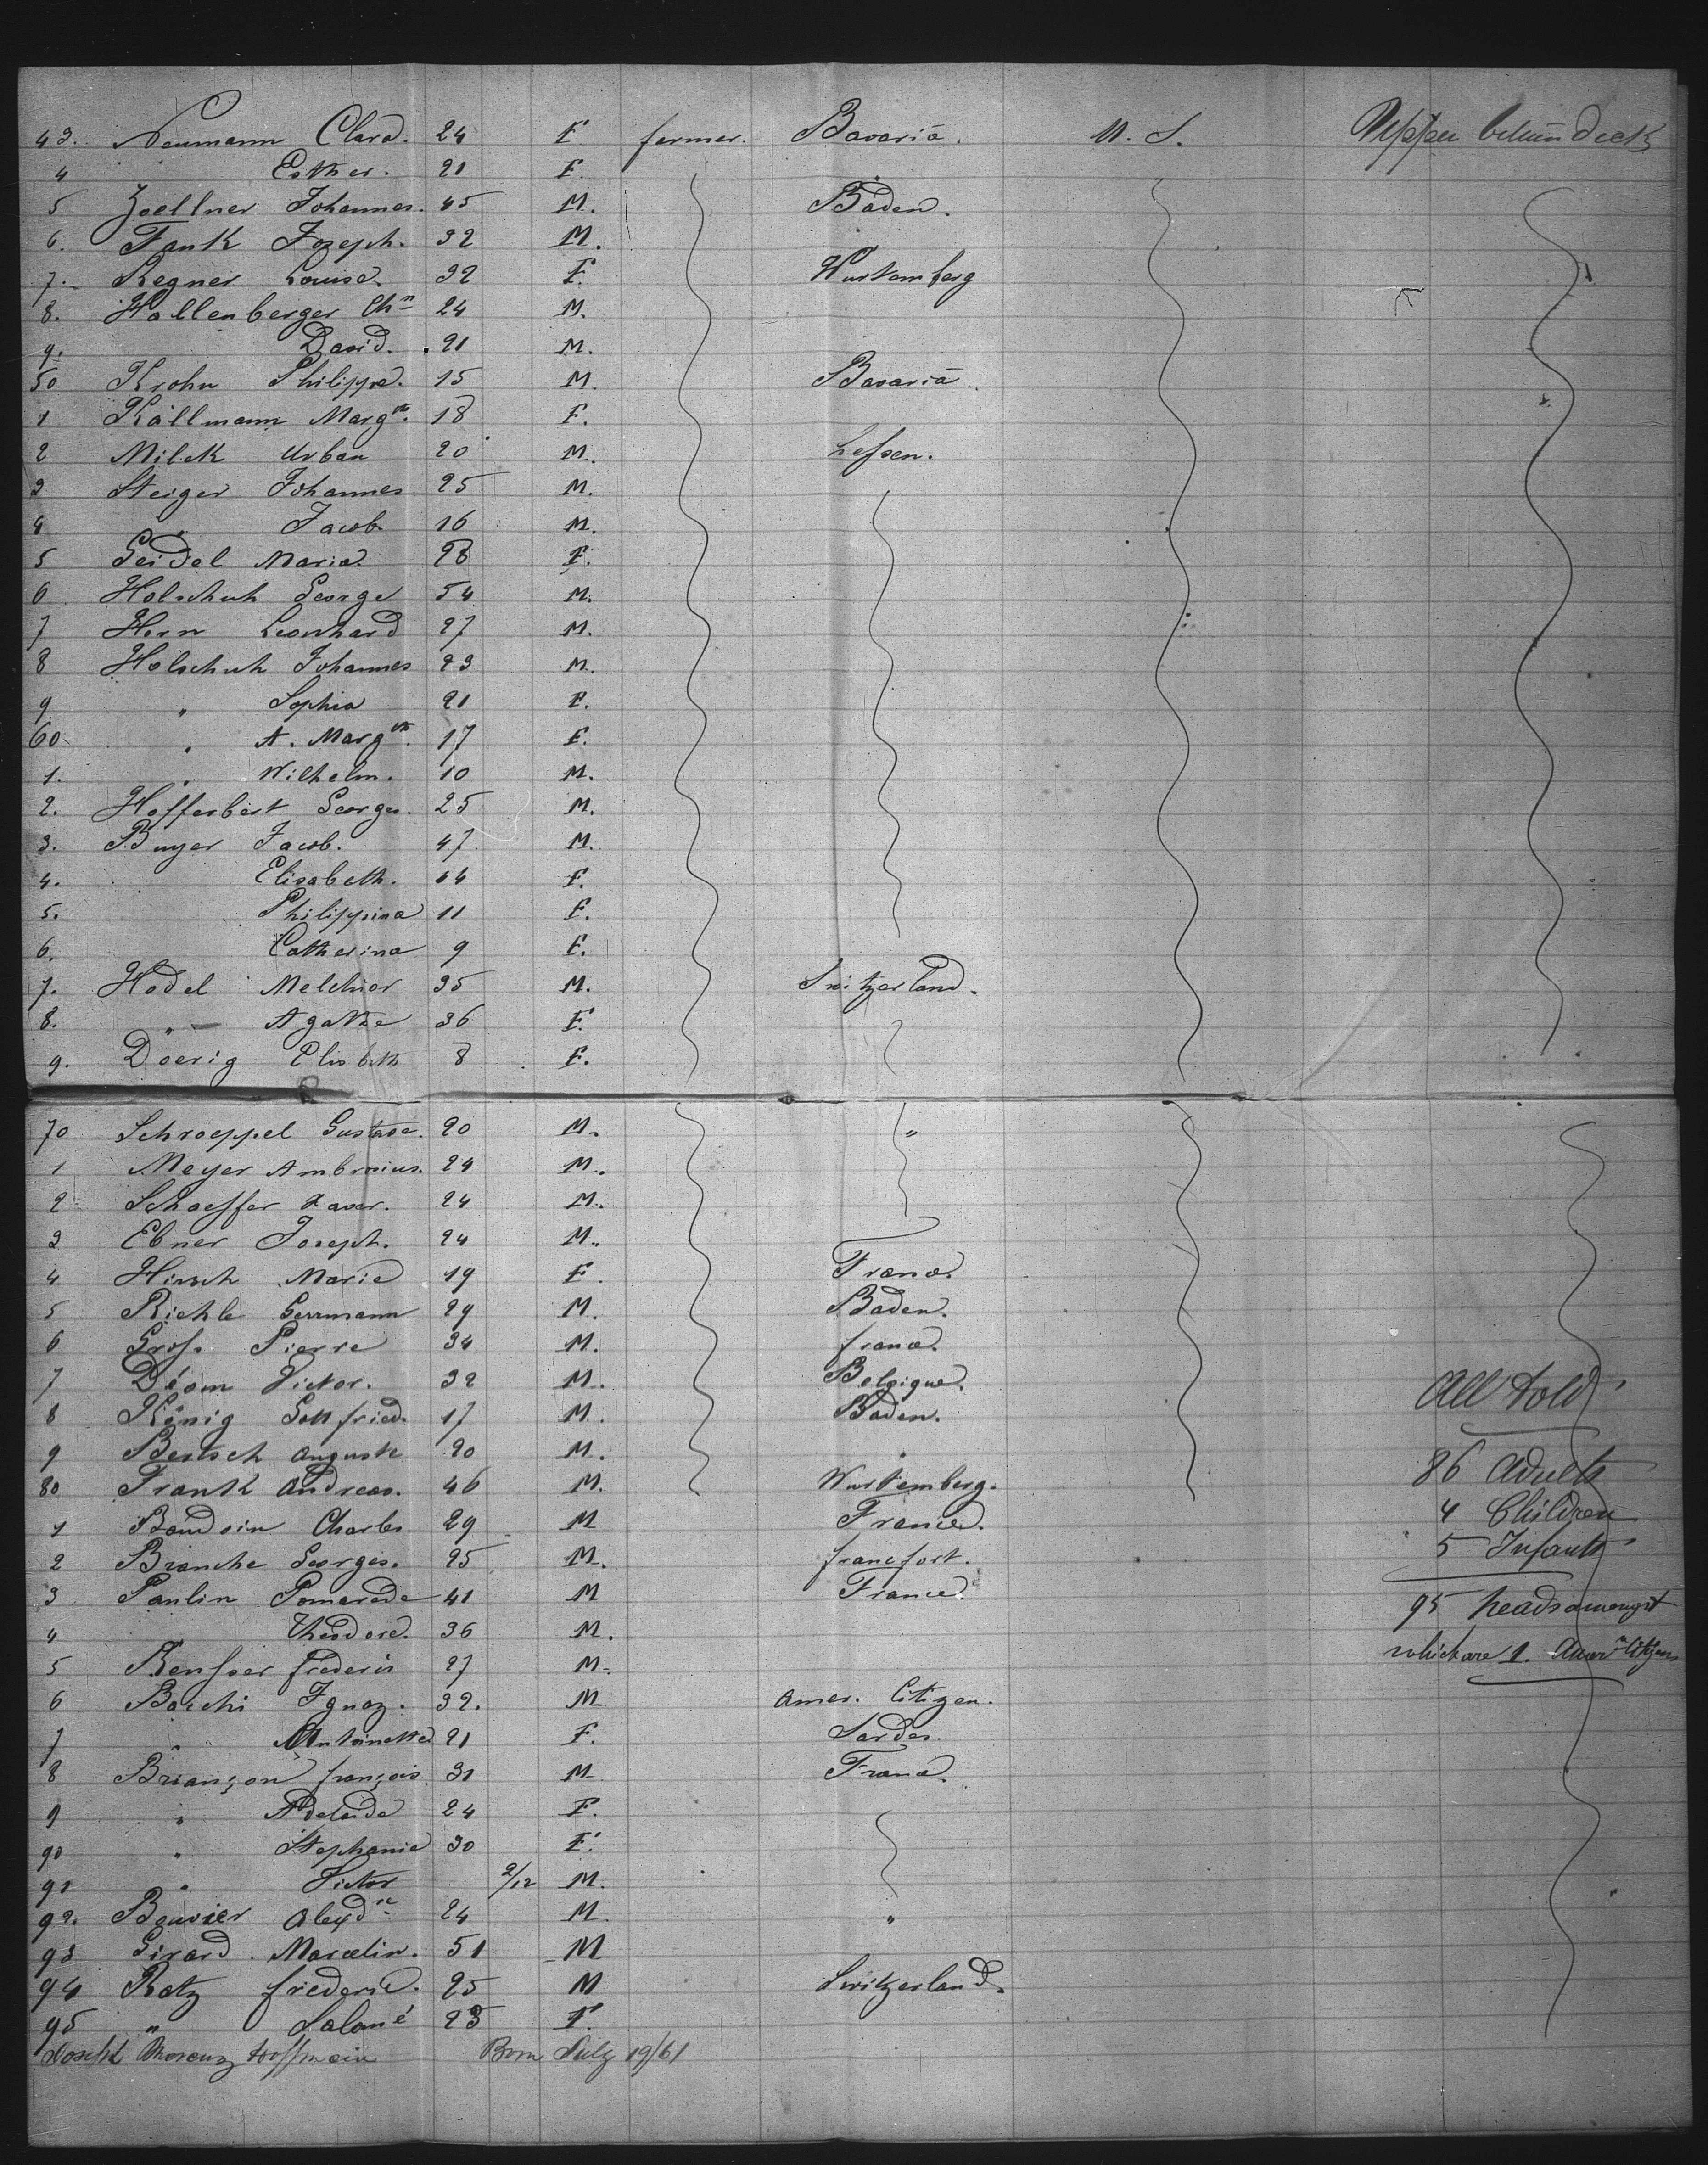 43. Neumann Clara. 24 F. farmer. Bavaria. U. S. Upper between deck
4 Esther. 21 F.
5 Zoellner Johannes. 45 M. Baden.
6. Fank Joseph. 32 M.
7. Regner Louise. 32 F. Wurtemberg
8. Hallenberger Chn 24 M.
9. David. 21 M.
50 Krohn Philippe. 15 M. Bavaria.
1 Kallmann Margte. 18 F.
2 Milck Urban 20 M. Hessen.
3 Steiger Johannes 25 M.
4 " Jacob 16 M.
5 Seidel Maria. 28 F.
6 Holschuh George 54 M.
7 Horn Leonhard 27 M.
8 Holschuh Johannes 23 M.
9 " Sophia 21 F.
60 " A. Margte. 17 F.
1. " Wilhelm. 10 M.
2. Hofferbert Georges. 25 M.
3. Buyer Jacob. 47 M.
4. Elisabeth. 44 F.
5. Philippina 11 F.
6. Catherina 9 F.
7. Hodel Melchior 35 M. Switzerland.
8. " Agathe 36 F.
9. Doerig Elisbeth 8 F.
70 Schroeppel Gustave. 20 M. "
1 Meyer Ambrosius. 24 M.
2 Schaeffer Xaver. 24 M.
3 Ebner Joseph. 24 M.
4 Hirsch Marie 19 F. France.
5 Riehle Germann 29 M. Baden.
6 Gross Pierre 34 M. france.
7 Diom Victor. 32 M. Belgique.
8 König Gottfried. 17 M. Baden.
9 Bertsch Auguste 20 M. "
80 Frank Andreas. 46 M. Wurtemberg.
1 Baudoin Charles 29 M France.
2 Branche Georges. 25 M. francfort.
3 Paulin Pomarede 41 M France.
4 Theodore. 36 M.
5 Frederic 27 M.
6 Bacchi Ignaz. 32. M Amer. Citizen.
7 " Antoinette 21 F. Sardes.
8 Briançon françois 31 M France.
9 " Adelaide 24 F.
90 " Stephanie 30 F.
91 " Victor 2/12 M.
92. Bouvier Alexdre 24 M. "
93 Girard Marcelin. 51 M
94 Ratz frederic. 25 M Switzerland.
95 " Salomé 23 F.
Joseph Hoffmain Born July 19/61
All told
86 Adults
4 Children
5 Infants
95 heads amongst
which are 1. Amern Citizens